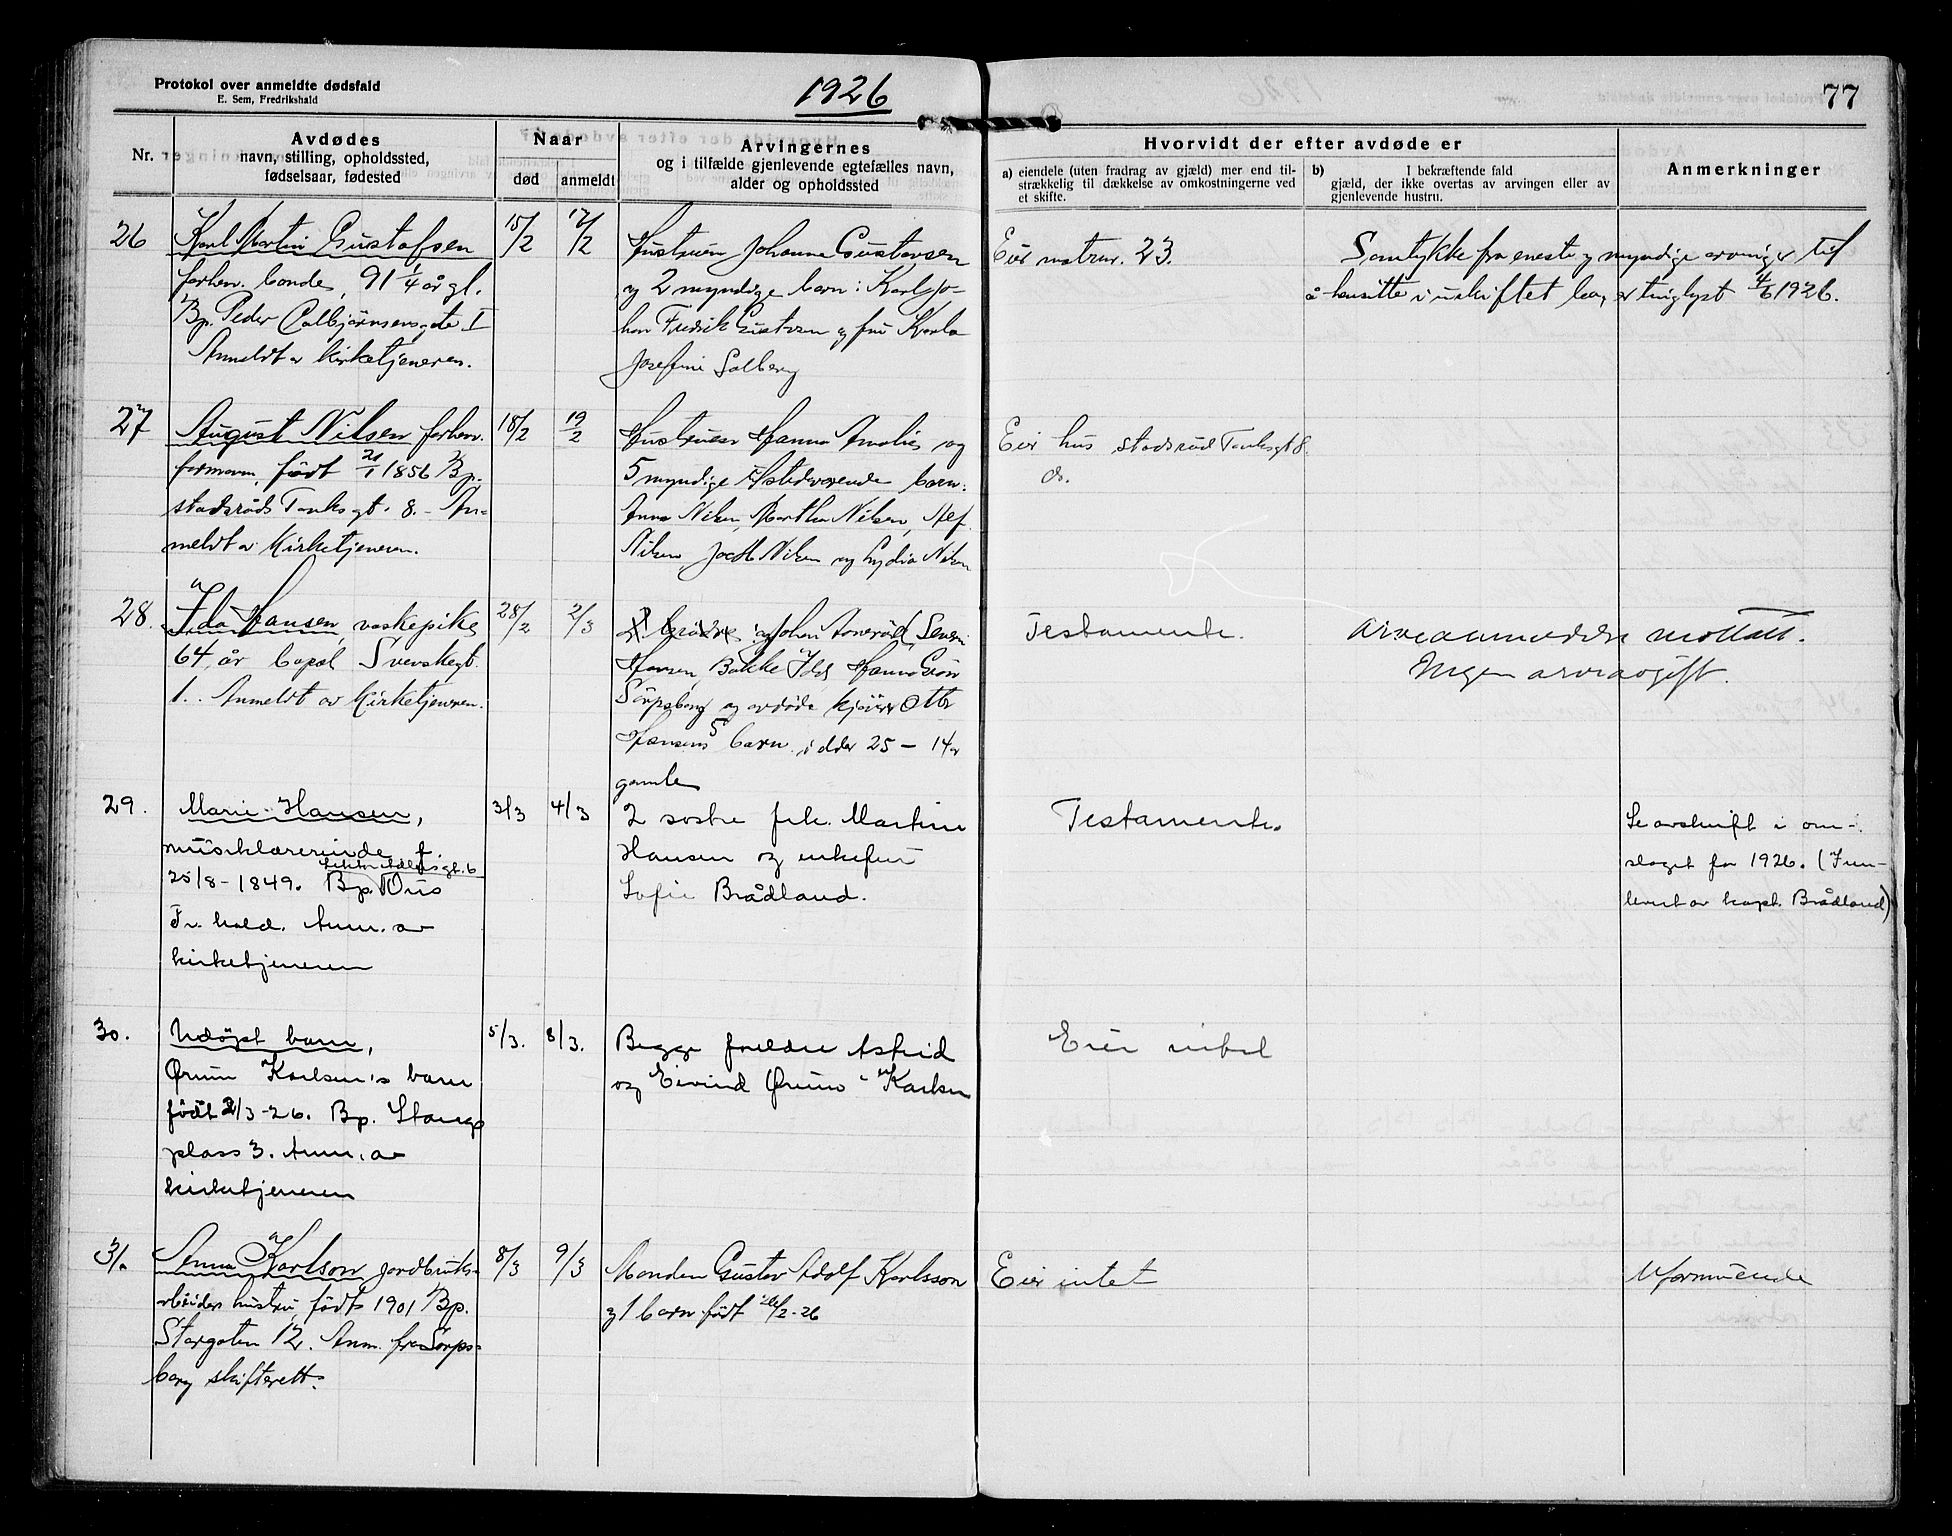 Protokol over anmeldte dødsfald
E. Sem, Fredrikshald
1926
77
Nr.
Avdødes
navn, stilling, opholdssted,
fødselsaar, fødested
Naar
død
anmeldt
Arvingernes
og i tilfælde gjenlevende egtefælles navn,
alder og opholdssted
Hvorvidt der efter avdøde er
a) eiendele (uten fradrag av gjæld) mer end til-
strækkelig til dækkelse av omkostningerne ved
et skifte.
b) I bekræftende fald
gjæld, der ikke overtas av arvingen eller av
gjenlevende hustru.
Anmerkninger
26
Karl Martin Gustafsen
forhen. bonde, 91 1/4 år gl.
Bp. Peder Colbjörnsensgate I
Anmeldt av kirketjeneren.
15/2
17/2
Hustruen Johanne Gustavsen
og 2 myndige barn: Karl Jo-
han Fredrik Gustavsen og fru Karla
Josefine Solberg
Eier matrnr. 23.
Samtykke fra eneste og myndige arvinger til
å hensitte i uskiftet bo, er tinglyst 4/6 1926.
27
August Nilsen forhen.
formann, født 20/1 1856 Bp.
stadsråd Tanksgt. 8. - An-
meldt av Kirketjeneren.
18/2
19/2
Hustruen Hanna Amalie og
5 myndige tilstedeværende barn:
Anna Nilsen, Martha Nilsen, Alf
Nilsen, Nilsen og Lydia Nilsen
Eier hus stadsråd Tanksgt 8.
28.
Ida Hansen, vaskepike,
64 år Svenskegt.
1. Anmeldt av Kirketjeneren.
28/2
2/3
Johan Severin
Hansen, Bakke Idd, Hanna
Sarpsborg og avdøde Otto
Hansens 5 barn i alder 25 - 14 år
gamle
Testamente.
Arveanmeldelse mottatt.
Ingen arveavgift.
29.
Marie Hansen,
musiklærerinde f.
25/8-1849. Bp.
Fr. hald. Anm. av
kirketjeneren
3/3
4/3
2 søstre frk. Martine
Hansen og enkefru
Sofie Brådland.
Testamente.
Se avskrift i om-
slaget for 1926. (Inn-
levert av kapt. Brådland)
30.
Udöpt barn,
Ørum Karlsen's barn
født 2/3-26. Bp. Stangs
plass 3. Anm. av
kirketjeneren
5/3.
8/3.
Begge foreldre Astrid
og Eivind Ørum-Karlsen
Eier intet
31.
Anna Karlson, jordbruks-
arbeiders hustru, født 1901 Bp.
Storgaten 12. Anm. fra Sarps-
borg skifterett.
8/3
9/3
Manden Gustav Adolf Karlsson
og 1 barn født /2-26
Eier intet
Uformuende